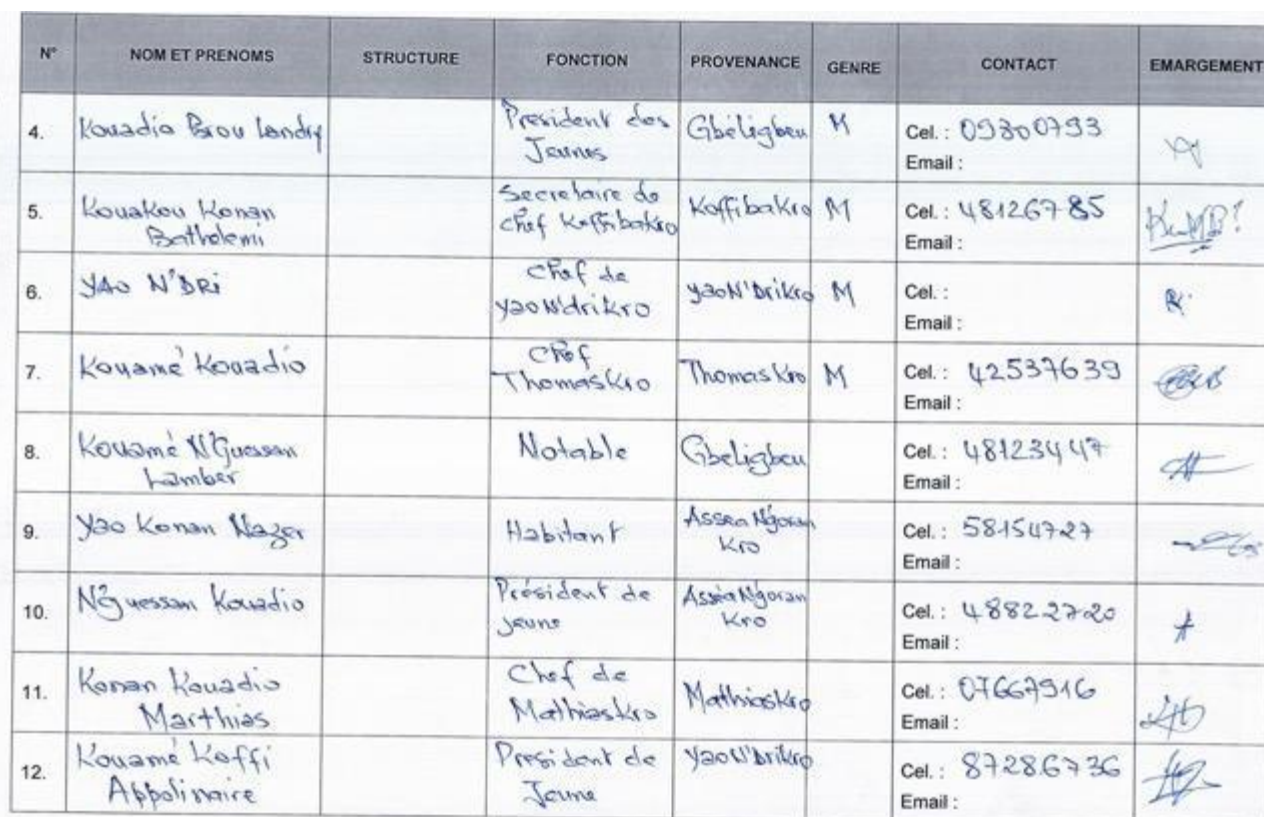 N° NOM ET PRENOMS STRUCTURE FONCTION PROVENANCE GENRE CONTACT EMARGEMENT
4. Kouadio Brou Landry President des Jeunes Gbeligbeu M Cel. : 09300793
Email :
5. Kouakou Konan Batholemi Secretaire de chef Koffibakro Koffibakro M Cel. : 48126785
Email :
6. YAO N'DRi chef de yaoN'drikro yaoN'Drikro M Cel. :
Email :
7. Kouamé Kouadio chef Thomaskro Thomaskro M Cel. : 42537639
Email :
8. Kouamé N'Guessan Lamber Notable Gbeligbeu Cel. : 48123447
Email :
9. Yao Konan Nazer Habitant Assea N'goran Kro Cel. : 58154727
Email :
10. N'guessan Kouadio Président de jeune Asséa N'goran Kro Cel. : 48822720
Email :
11. Konan Kouadio Marthias Chef de Mathiaskro Mathiaskro Cel. : 07667916
Email :
12. Kouamé Koffi Appolinaire President de Jeune yaoN'Drikro Cel. : 87286736
Email :